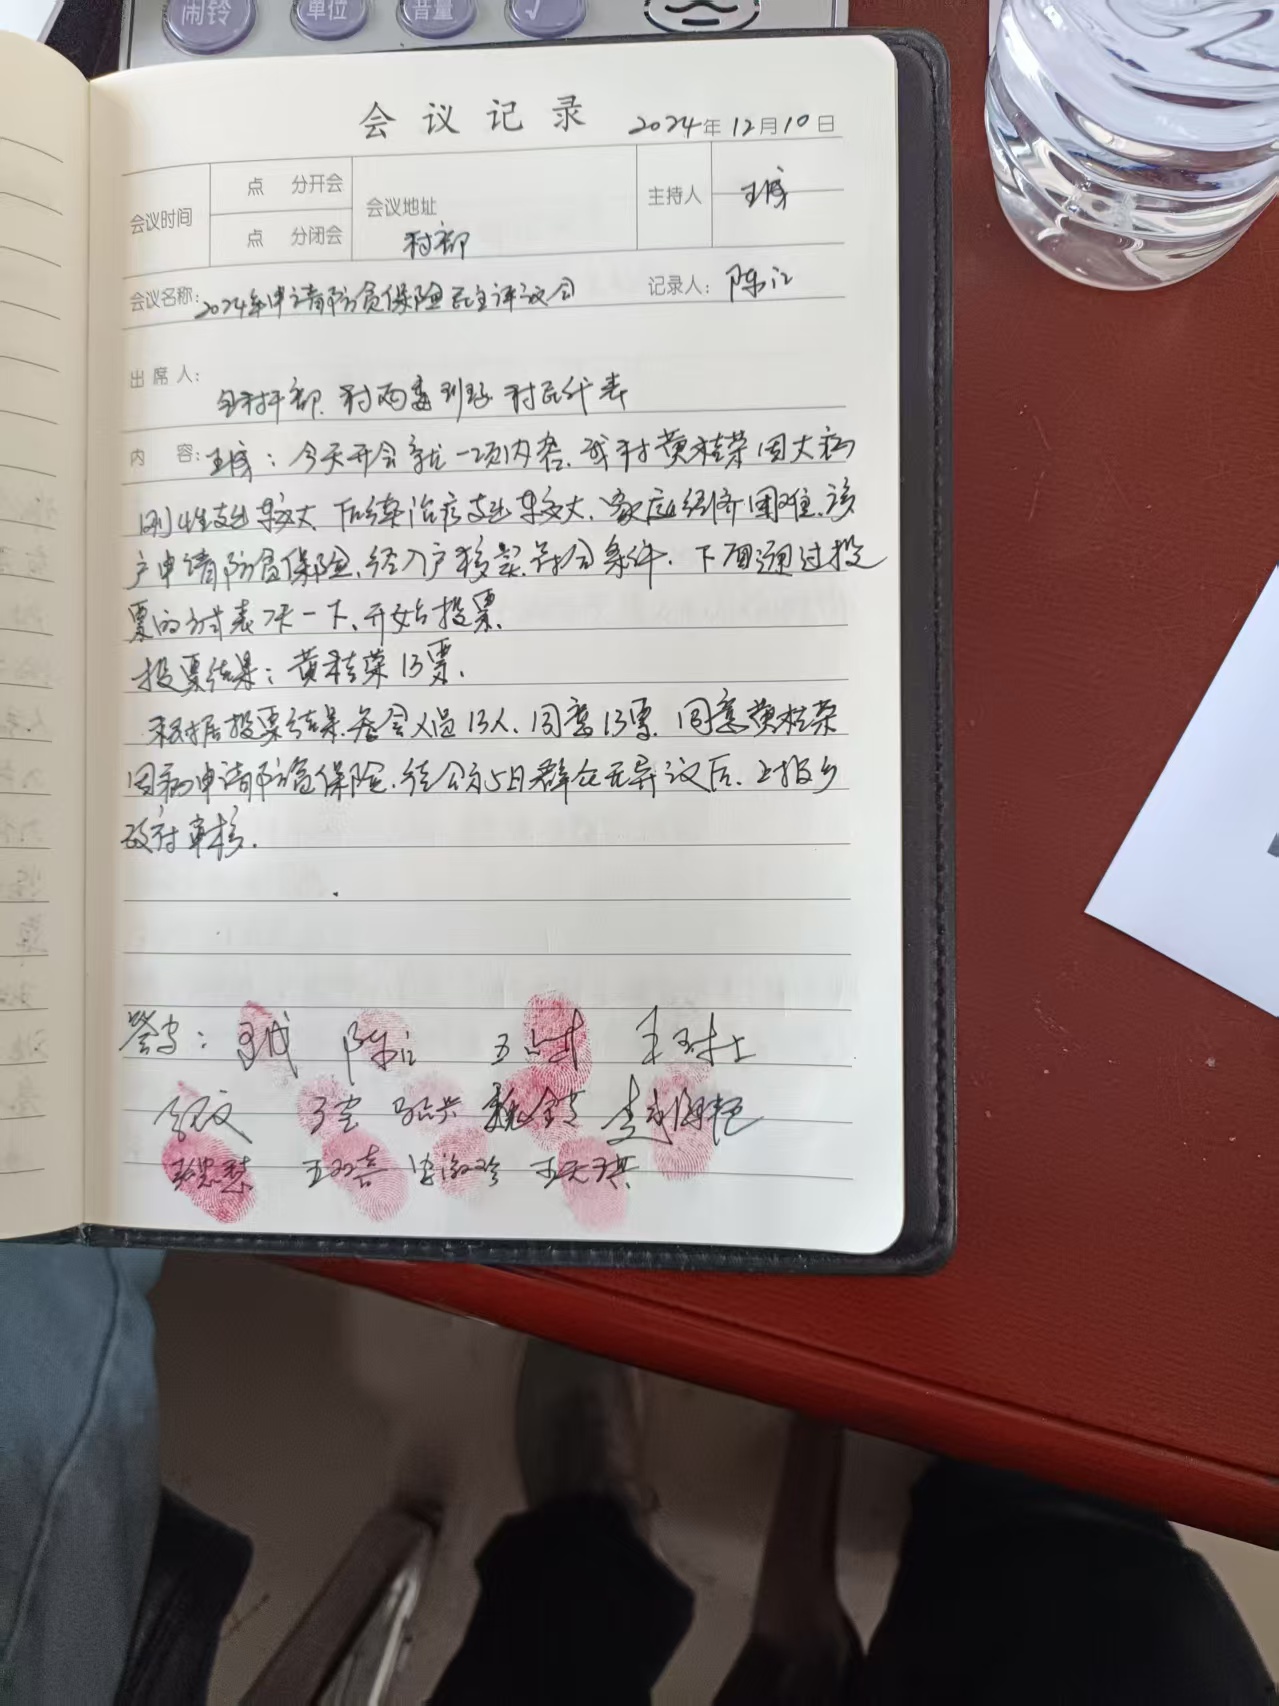 闹铃 单位 音量 √
会议记录
2024年12月10日
会议时间 点 分开会
点 分闭会
会议地址
村部
主持人
会议名称: 2024年申请防贫保险民主评议会
记录人: 陈江
出席人:
包村干部、村两委班子、村民代表
内 容: :今天开会就一项内容,我村黄桂荣因大病
刚性支出较大,后续治疗支出较大,家庭经济困难,该
户申请防贫保险,经入户核实,符合条件,下面通过投
票的方式表决一下,开始投票。
投票结果:黄桂荣13票。
根据投票结果,参会人员13人,同意13票,同意黄桂荣
因病申请防贫保险,待公示5日群众无异议后,上报乡
政府审核。
签字: 陈江
王双喜